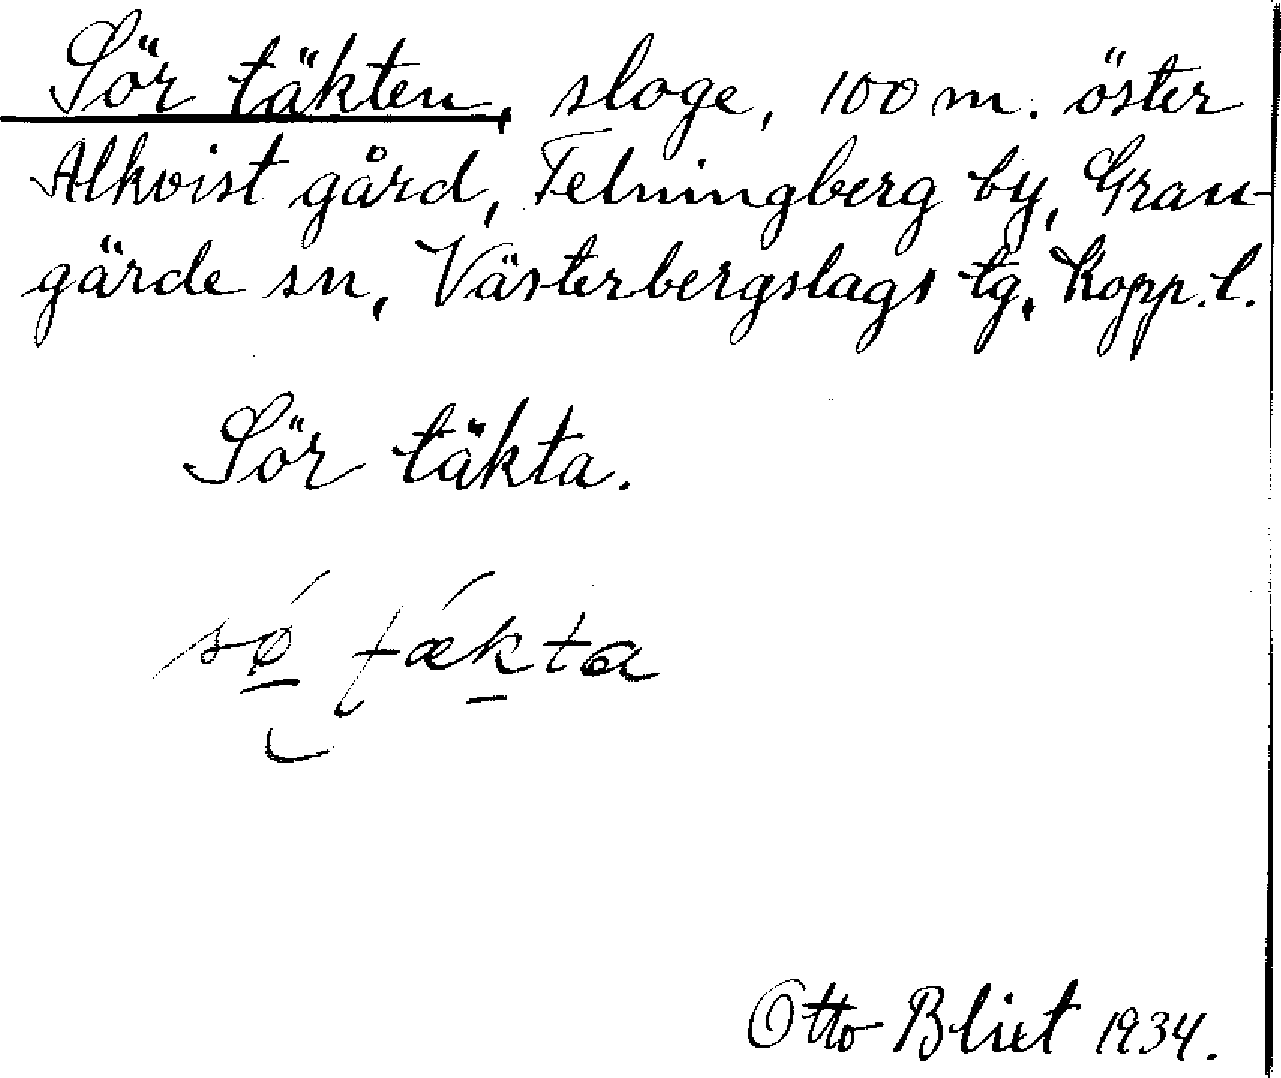 Sör täkten, sloge, 100 m. öster
Alkvist gård, Telningberg by, Gran-
gärde sn, Västerbergslags tg, Kopp. l.
Sör täkta.
sǿ tǽkta
Otto Blixt 1934.